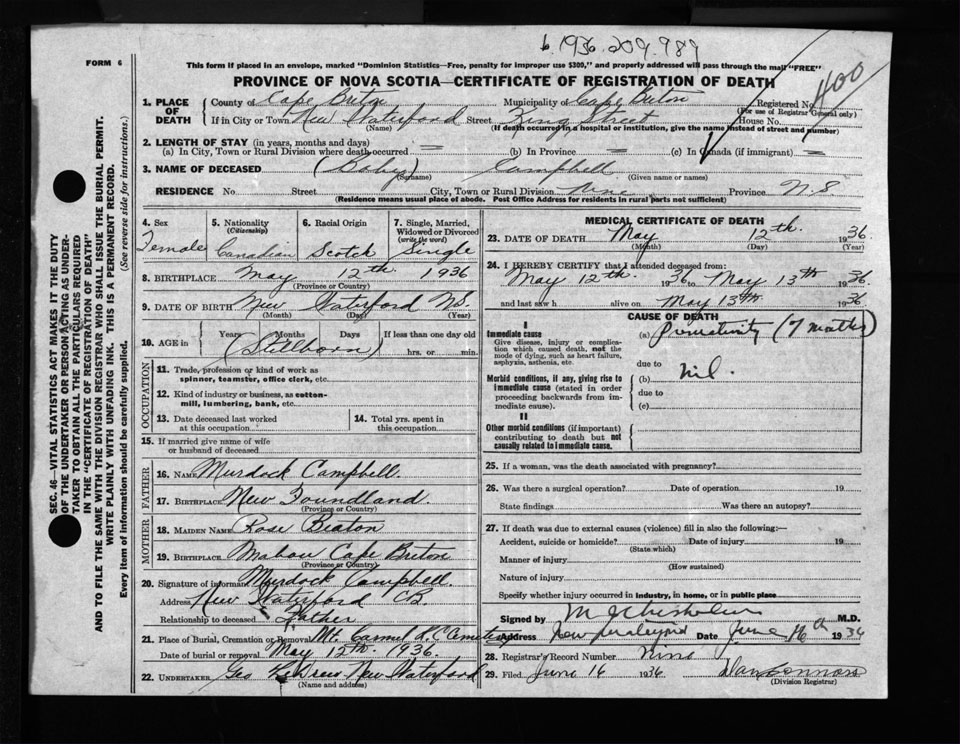 6.1936.209.989
400
FORM 6
This form if placed in an envelope, marked "Dominion Statistics—Free, penalty for improper use $300," and properly addressed will pass through the mail "FREE"
PROVINCE OF NOVA SCOTIA—CERTIFICATE OF REGISTRATION OF DEATH
1. PLACE OF DEATH County of Cape Breton Municipality of Cape Breton Registered No.
(For use of Registrar General only)
If in City or Town New Waterford Street King Street House No.
(Name) (If death occurred in a hospital or institution, give the name instead of street and number)
2. LENGTH OF STAY (in years, months and days)
(a) In City, Town or Rural Division where death occurred = (b) In Province = (c) In Canada (if immigrant) =
3. NAME OF DECEASED (Baby) Campbell
(Surname) (Given name or names)
RESIDENCE No. Street City, Town or Rural Division Province N.S
(Residence means usual place of abode. Post Office Address for residents in rural parts not sufficient)
4. Sex Female
5. Nationality (Citizenship) Canadian
6. Racial Origin Scotch
7. Single, Married, Widowed or Divorced (write the word) Single
8. BIRTHPLACE May 12th 1936
(Province or Country)
9. DATE OF BIRTH New Waterford N.S.
(Month) (Day) (Year)
10. AGE in Years Months Days If less than one day old
(Stillborn) hrs. or min.
OCCUPATION
11. Trade, profession or kind of work as spinner, teamster, office clerk, etc.
12. Kind of industry or business, as cotton-mill, lumbering, bank, etc.
13. Date deceased last worked at this occupation
14. Total yrs. spent in this occupation
15. If married give name of wife or husband of deceased
FATHER
16. NAME Murdock Campbell.
17. BIRTHPLACE New Foundland.
(Province or Country)
MOTHER
18. MAIDEN NAME Rose Beaton
19. BIRTHPLACE Mabou Cape Breton
(Province or Country)
20. Signature of informant Murdock Campbell.
Address New Waterford CB.
Relationship to deceased Father
21. Place of Burial, Cremation or Removal Mt. Carmel R.C. Cemetery
Date of burial or removal May 12th. 1936.
22. UNDERTAKER Geo New Waterford
(Name and address)
MEDICAL CERTIFICATE OF DEATH
23. DATE OF DEATH May 12th. 1936
(Month) (Day) (Year)
24. I HEREBY CERTIFY that I attended deceased from:
May 12th. 1936 to May 13th 1936
and last saw h alive on May 13th 1936
CAUSE OF DEATH
I
Immediate cause
Give disease, injury or complication which caused death, not the mode of dying, such as heart failure, asphyxia, asthenia, etc.
(a) Prematurity (7 months)
due to
Morbid conditions, if any, giving rise to immediate cause (stated in order proceeding backwards from immediate cause).
(b) nil.
due to
(c)
II
Other morbid conditions (if important) contributing to death but not causally related to immediate cause.
25. If a woman, was the death associated with pregnancy?
26. Was there a surgical operation? Date of operation 19
State findings Was there an autopsy?
27. If death was due to external causes (violence) fill in also the following:—
Accident, suicide or homicide? Date of injury 19
(State which)
Manner of injury
(How sustained)
Nature of injury
Specify whether injury occurred in industry, in home, or in public place
Signed by M J Chisholm M.D.
Address New Waterford Date June 16th 1936
28. Registrar's Record Number Nine
29. Filed June 16 1936 Dan Connors
(Division Registrar)
SEC. 46—VITAL STATISTICS ACT MAKES IT THE DUTY
OF THE UNDERTAKER OR PERSON ACTING AS UNDER-
TAKER TO OBTAIN ALL THE PARTICULARS REQUIRED
IN THE "CERTIFICATE OF REGISTRATION OF DEATH"
AND TO FILE THE SAME WITH THE DIVISION REGISTRAR WHO SHALL ISSUE THE BURIAL PERMIT.
WRITE PLAINLY WITH UNFADING INK. THIS IS A PERMANENT RECORD.
Every item of information should be carefully supplied. (See reverse side for instructions.)